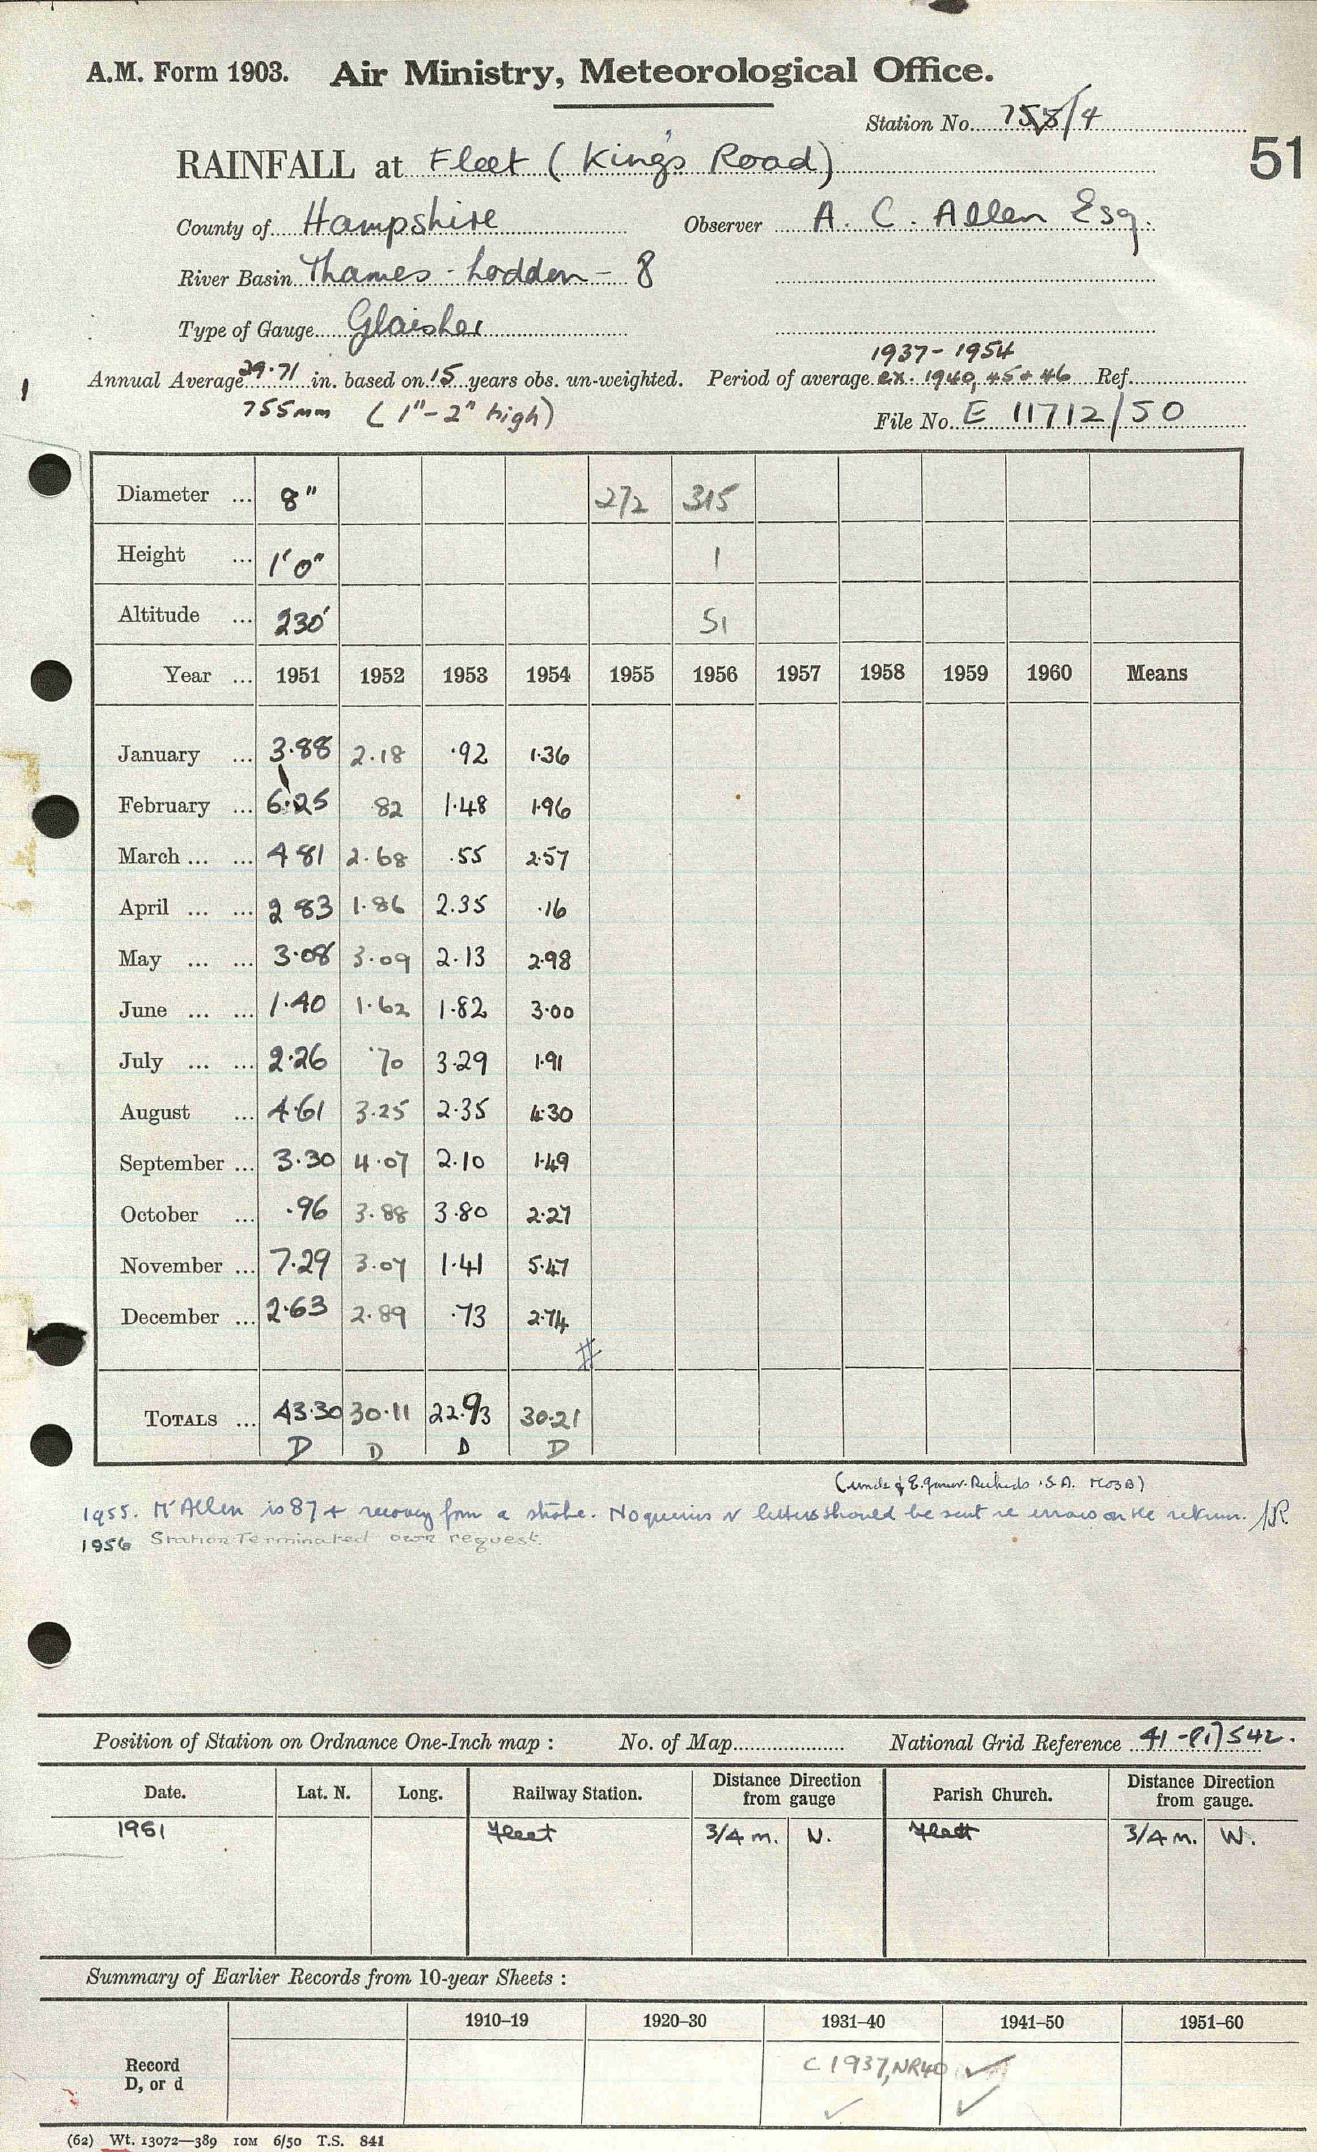 A.M. Form 1903. Air Ministry, Meteorological Office.
Station No. 755/4
51
RAINFALL at Fleet (King's Road)
County of Hampshire Observer A. C. Allen Esq.
River Basin Thames - Loddon - 8
Type of Gauge Glaisher
1937-1954
Annual Average 29.71 in. based on 15 years obs. un-weighted. Period of average ex. 1940, 45 + 46 Ref.
755mm (1"-2" high) File No. E 11712/50
Diameter ... 8" 272 315
Height ... 1'0" 1
Altitude ... 230' 51
Year ... 1951 1952 1953 1954 1955 1956 1957 1958 1959 1960 Means
January ... 3.88 2.18 .92 1.36
February ... 6.25 82 1.48 1.96
March ... ... 4 81 2.68 .55 2.57
April ... ... 2 83 1.86 2.35 .16
May ... ... 3.08 3.09 2.13 2.98
June ... ... 1.40 1.62 1.82 3.00
July ... ... 2.26 .70 3.29 1.91
August ... 4.61 3.25 2.35 4.30
September ... 3.30 4.07 2.10 1.49
October ... .96 3.88 3.80 2.27
November ... 7.29 3.07 1.41 5.47
December ... 2.63 2.89 .73 2.74
#
TOTALS ... 43.30 30.11 22.93 30.21
D D D D
(uncle of E. S.A. M03B)
1955. Mr Allen is 87 + recovery from a stroke. No queries or letters should be sent re errors on the return. JR
1956 Station Terminated own request.
Position of Station on Ordnance One-Inch map : No. of Map National Grid Reference 41-817542.
Date. Lat. N. Long. Railway Station. Distance Direction from gauge Parish Church. Distance Direction from gauge.
1951 Fleet 3/4 m. N. Fleet 3/4 m. W.
Summary of Earlier Records from 10-year Sheets :
1910–19 1920–30 1931–40 1941–50 1951–60
Record D, or d C 1937, NR40 ✓
✓ ✓
(62) Wt. 13072—389 10M 6/50 T.S. 841